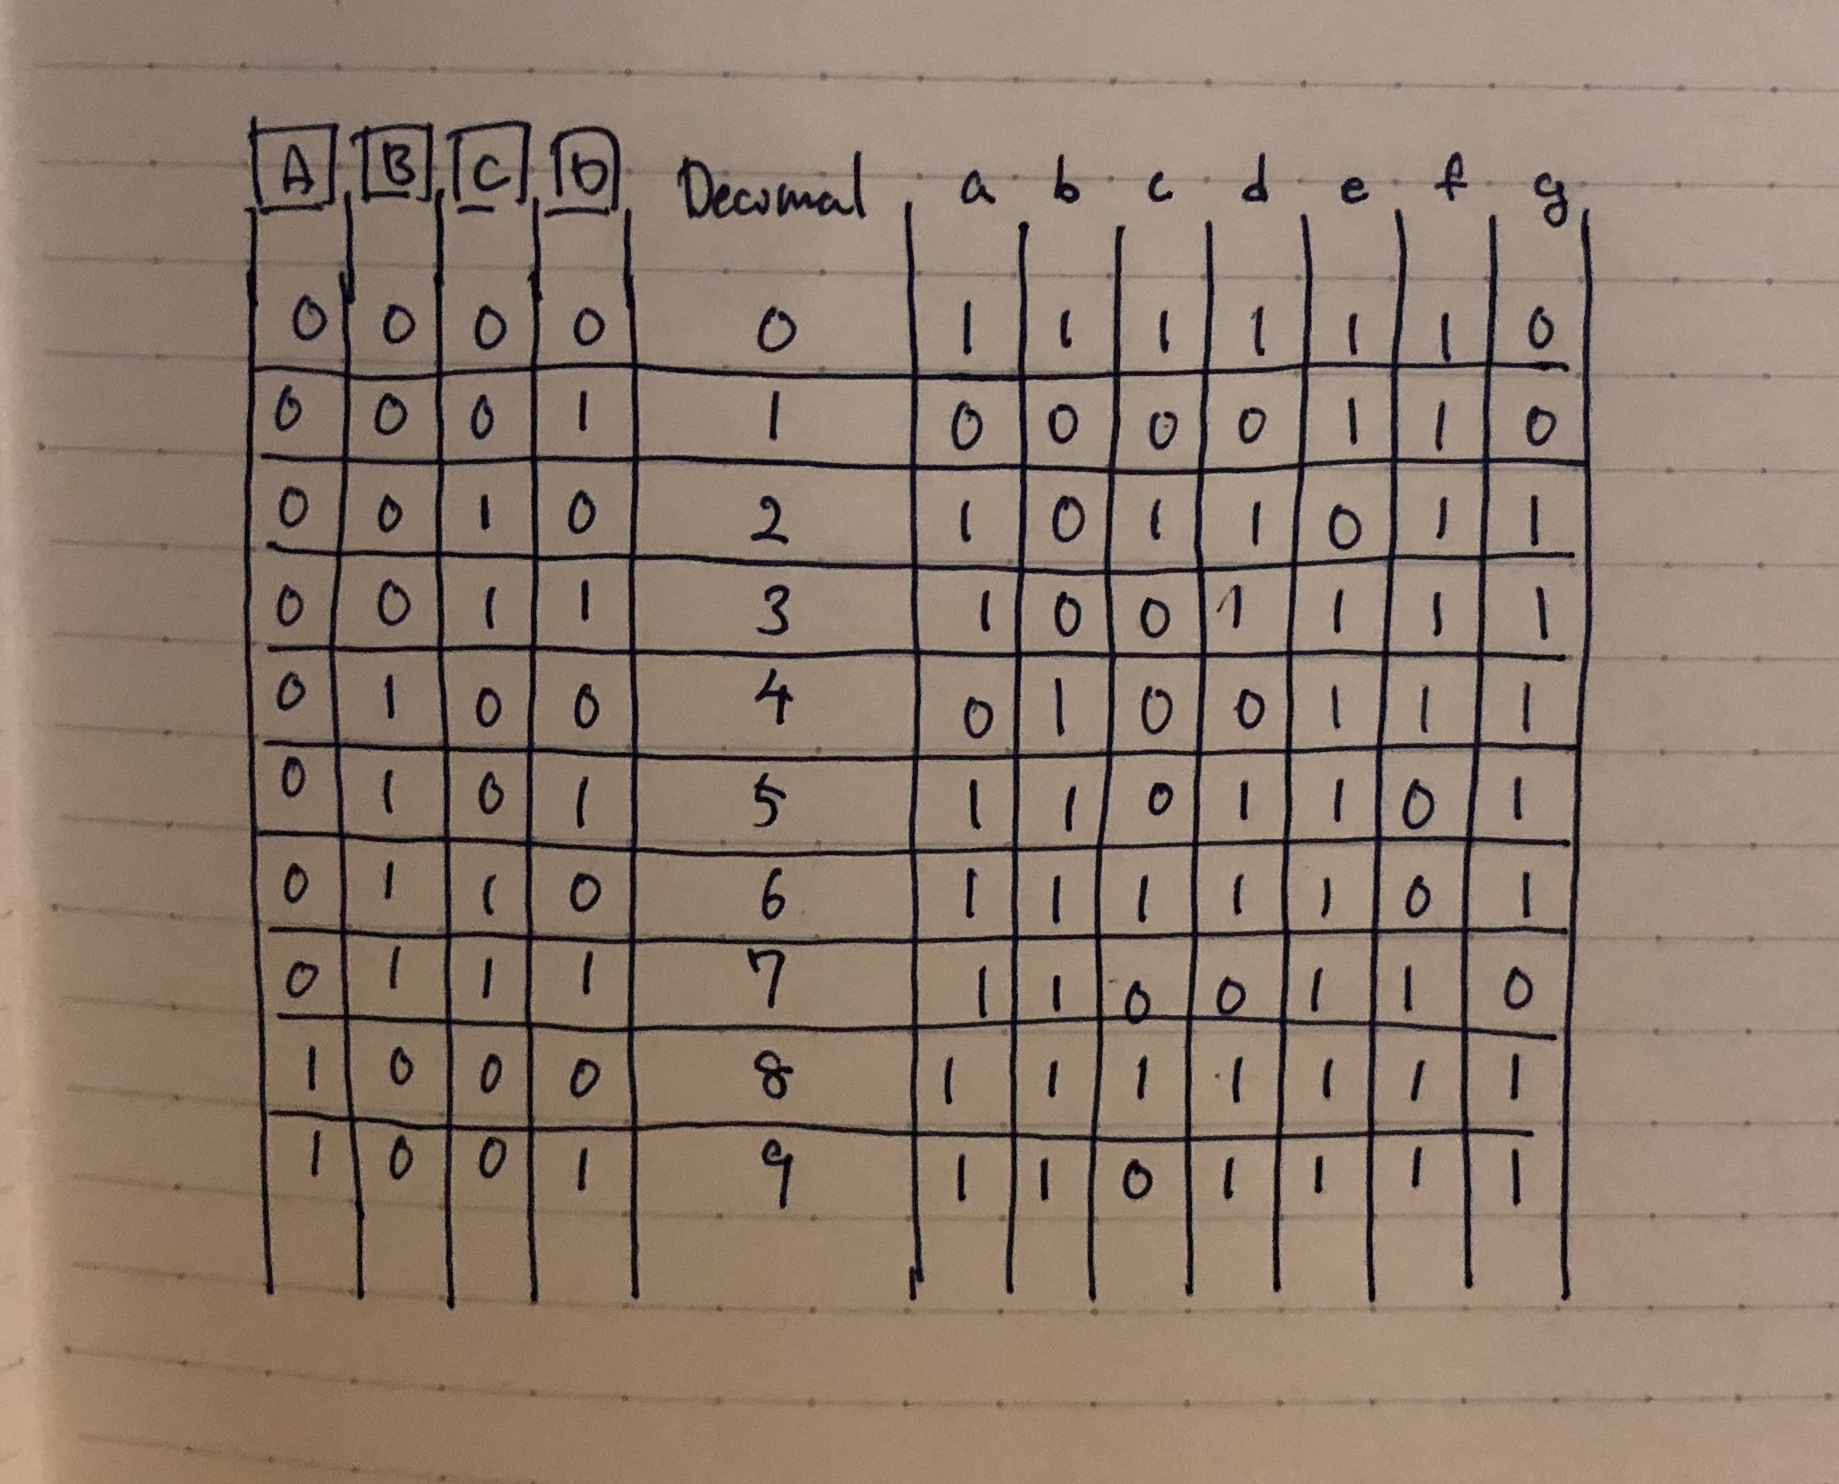 A B C D Decimal a b c d e f g
0 0 0 0 0 1 1 1 1 1 1 0
0 0 0 1 1 0 0 0 0 1 1 0
0 0 1 0 2 1 0 1 1 0 1 1
0 0 1 1 3 1 0 0 1 1 1 1
0 1 0 0 4 0 1 0 0 1 1 1
0 1 0 1 5 1 1 0 1 1 0 1
0 1 1 0 6 1 1 1 1 1 0 1
0 1 1 1 7 1 1 0 0 1 1 0
1 0 0 0 8 1 1 1 1 1 1 1
1 0 0 1 9 1 1 0 1 1 1 1